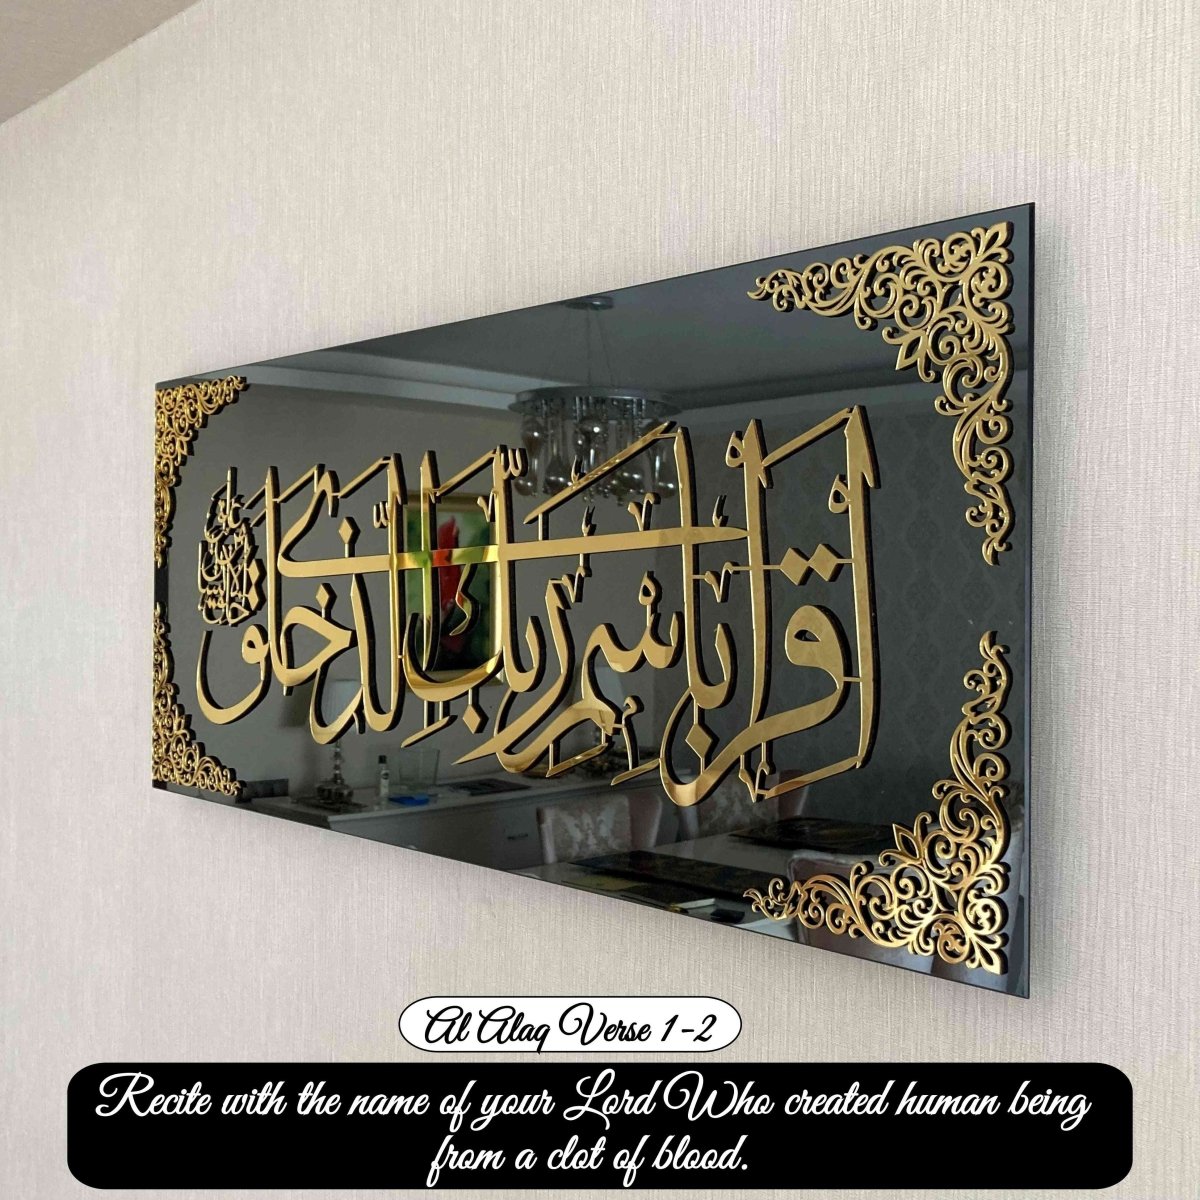 اقرأ باسم ربك الذي خلق
خلق الإنسان من علق
Al Alaq Verse 1-2
Recite with the name of your Lord Who created human being
from a clot of blood.